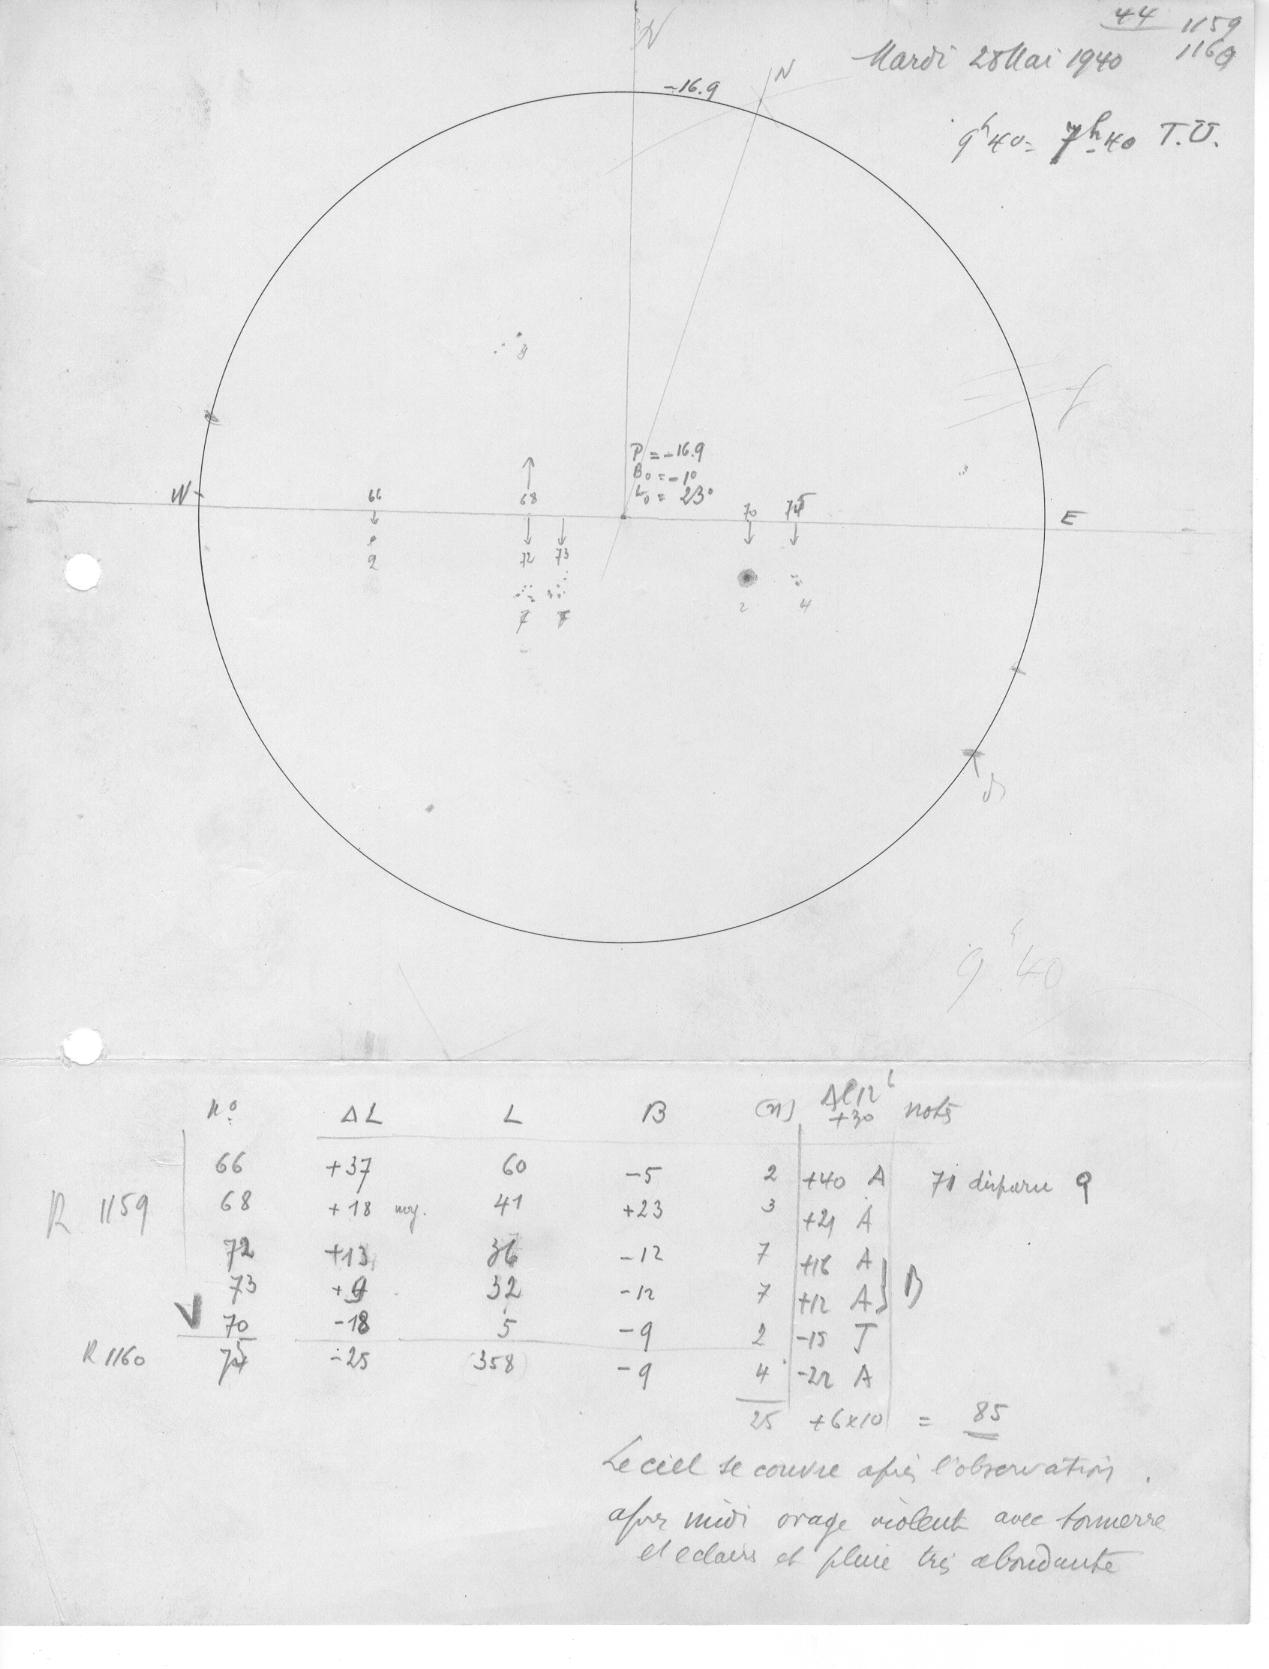 44 1159
1160
Mardi 28 Mai 1940
9h40 = 7h40 T.U.
N
N
-16.9
P = -16.9
B0 = -1°
L0 = 23°
W
66
68
70
75
E
3
2
72
73
7
7
2
4
9h40
No ΔL L B (n) notes
+30
66 +37 60 -5 2 +40 A 71 disparu
R 1159 68 +18 moy. 41 +23 3 +21 A
72 +13 36 -12 7 +16 A
73 +9 32 -12 7 +12 A } B
70 -18 5 -9 2 -15 J
R 1160 75 -25 358 -9 4 -22 A
25 +6x10 = 85
Le ciel se couvre après l'observation.
après midi orage violent avec tonnerre
et eclairs et pluie très abondante